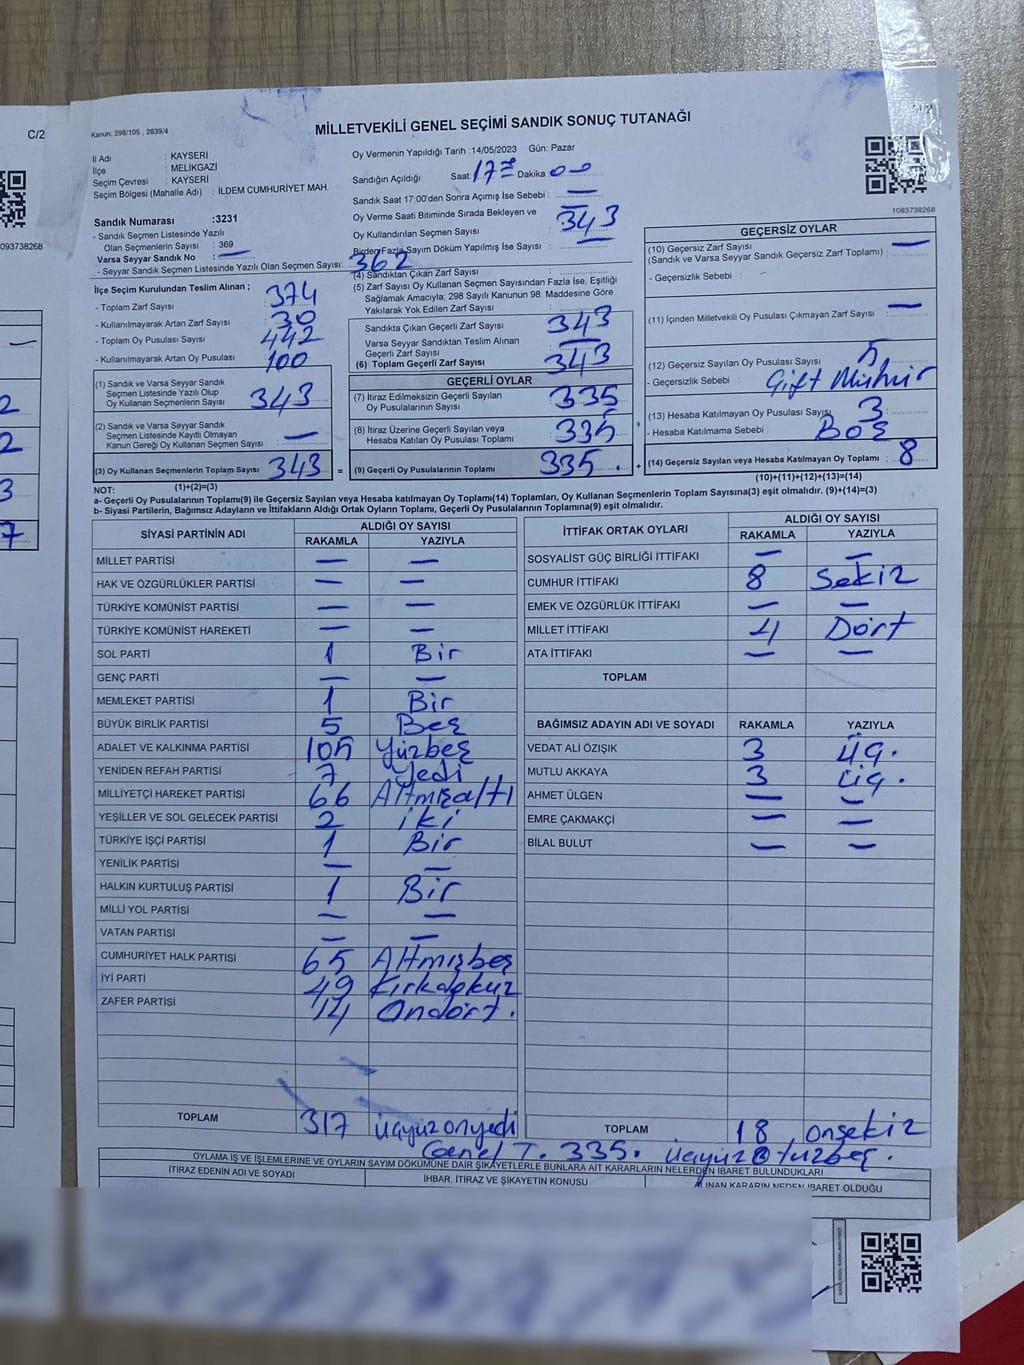 C/2
Kanun, 298/105 , 2839/4
MİLLETVEKİLİ GENEL SEÇİMİ SANDIK SONUÇ TUTANAĞI
İl Adı : KAYSERİ
İlçe : MELİKGAZİ
Seçim Çevresi : KAYSERİ
Seçim Bölgesi (Mahalle Adı) : İLDEM CUMHURİYET MAH.
Oy Vermenin Yapıldığı Tarih :14/05/2023 Gün: Pazar
Sandığın Açıldığı Saat: 17 Dakika 00
Sandık Saat 17:00'den Sonra Açımış İse Sebebi : —
Oy Verme Saati Bitiminde Sırada Bekleyen ve —
Oy Kullandırılan Seçmen Sayısı 343
Birden Fazla Sayım Döküm Yapılmış İse Sayısı : —
Sandık Numarası :3231
- Sandık Seçmen Listesinde Yazılı
Olan Seçmenlerin Sayısı : 369
Varsa Seyyar Sandık No : —
- Seyyar Sandık Seçmen Listesinde Yazılı Olan Seçmen Sayısı:
362
093738268
1083738268
İlçe Seçim Kurulundan Teslim Alınan ;
- Toplam Zarf Sayısı 374
- Kullanılmayarak Artan Zarf Sayısı 30
- Toplam Oy Pusulası Sayısı 442
- Kullanılmayarak Artan Oy Pusulası 100
(1) Sandık ve Varsa Seyyar Sandık
Seçmen Listesinde Yazılı Olup
Oy Kullanan Seçmenlerin Sayısı 343
(2) Sandık ve Varsa Seyyar Sandık
Seçmen Listesinde Kayıtlı Olmayan
Kanun Gereği Oy Kullanan Seçmen Sayısı : —
(3) Oy Kullanan Seçmenlerin Toplam Sayısı 343 =
(1)+(2)=(3)
(4) Sandıktan Çıkan Zarf Sayısı :
(5) Zarf Sayısı Oy Kullanan Seçmen Sayısından Fazla İse, Eşitliği
Sağlamak Amacıyla; 298 Sayılı Kanunun 98. Maddesine Göre
Yakılarak Yok Edilen Zarf Sayısı :
Sandıkta Çıkan Geçerli Zarf Sayısı 343
Varsa Seyyar Sandıktan Teslim Alınan
Geçerli Zarf Sayısı : —
(6) Toplam Geçerli Zarf Sayısı 343
GEÇERLİ OYLAR
(7) İtiraz Edilmeksizin Geçerli Sayılan
Oy Pusulalarının Sayısı 335
(8) İtiraz Üzerine Geçerli Sayılan veya
Hesaba Katılan Oy Pusulası Toplamı 335
(9) Geçerli Oy Pusulalarının Toplamı 335 . +
GEÇERSİZ OYLAR
(10) Geçersiz Zarf Sayısı —
(Sandık ve Varsa Seyyar Sandık Geçersiz Zarf Toplamı) :
- Geçersizlik Sebebi :
(11) İçinden Milletvekili Oy Pusulası Çıkmayan Zarf Sayısı : —
(12) Geçersiz Sayılan Oy Pusulası Sayısı 5
- Geçersizlik Sebebi : Çift Mühür
(13) Hesaba Katılmayan Oy Pusulası Sayısı 3
- Hesaba Katılmama Sebebi : Boş
(14) Geçersiz Sayılan veya Hesaba Katılmayan Oy Toplamı : 8
(10)+(11)+(12)+(13)=(14)
NOT:
a- Geçerli Oy Pusulalarının Toplamı(9) ile Geçersiz Sayılan veya Hesaba katılmayan Oy Toplamı(14) Toplamları, Oy Kullanan Seçmenlerin Toplam Sayısına(3) eşit olmalıdır. (9)+(14)=(3)
b- Siyasi Partilerin, Bağımsız Adayların ve İttifakların Aldığı Ortak Oyların Toplamı, Geçerli Oy Pusulalarının Toplamına(9) eşit olmalıdır.
SİYASİ PARTİNİN ADI ALDIĞI OY SAYISI
RAKAMLA YAZIYLA
MİLLET PARTİSİ — —
HAK VE ÖZGÜRLÜKLER PARTİSİ — —
TÜRKİYE KOMÜNİST PARTİSİ — —
TÜRKİYE KOMÜNİST HAREKETİ — —
SOL PARTİ 1 Bir
GENÇ PARTİ — —
MEMLEKET PARTİSİ 1 Bir
BÜYÜK BİRLİK PARTİSİ 5 Beş
ADALET VE KALKINMA PARTİSİ 105 Yüzbeş
YENİDEN REFAH PARTİSİ 7 Yedi
MİLLİYETÇİ HAREKET PARTİSİ 66 Altmışaltı
YEŞİLLER VE SOL GELECEK PARTİSİ 2 iki
TÜRKİYE İŞÇİ PARTİSİ 1 Bir
YENİLİK PARTİSİ — —
HALKIN KURTULUŞ PARTİSİ 1 Bir
MİLLİ YOL PARTİSİ — —
VATAN PARTİSİ — —
CUMHURİYET HALK PARTİSİ 65 Altmışbeş
İYİ PARTİ 49 Kırkdokuz
ZAFER PARTİSİ 14 Ondört.
TOPLAM 317 üçyüzonyedi
İTTİFAK ORTAK OYLARI ALDIĞI OY SAYISI
RAKAMLA YAZIYLA
SOSYALİST GÜÇ BİRLİĞİ İTTİFAKI — —
CUMHUR İTTİFAKI 8 Sekiz
EMEK VE ÖZGÜRLÜK İTTİFAKI — —
MİLLET İTTİFAKI 4 Dört
ATA İTTİFAKI — —
TOPLAM
BAĞIMSIZ ADAYIN ADI VE SOYADI RAKAMLA YAZIYLA
VEDAT ALİ ÖZIŞIK 3 üç.
MUTLU AKKAYA 3 üç.
AHMET ÜLGEN — —
EMRE ÇAKMAKÇİ — —
BİLAL BULUT — —
TOPLAM 18 onsekiz
Genel T. 335.
OYLAMA İŞ VE İŞLEMLERİNE VE OYLARIN SAYIM DÖKÜMÜNE DAİR ŞİKAYETLERLE BUNLARA AİT KARARLARIN NELERDEN İBARET BULUNDUKLARI
İTİRAZ EDENİN ADI VE SOYADI
İHBAR, İTİRAZ VE ŞİKAYETİN KONUSU
ALINAN KARARIN NEDEN İBARET OLDUĞU